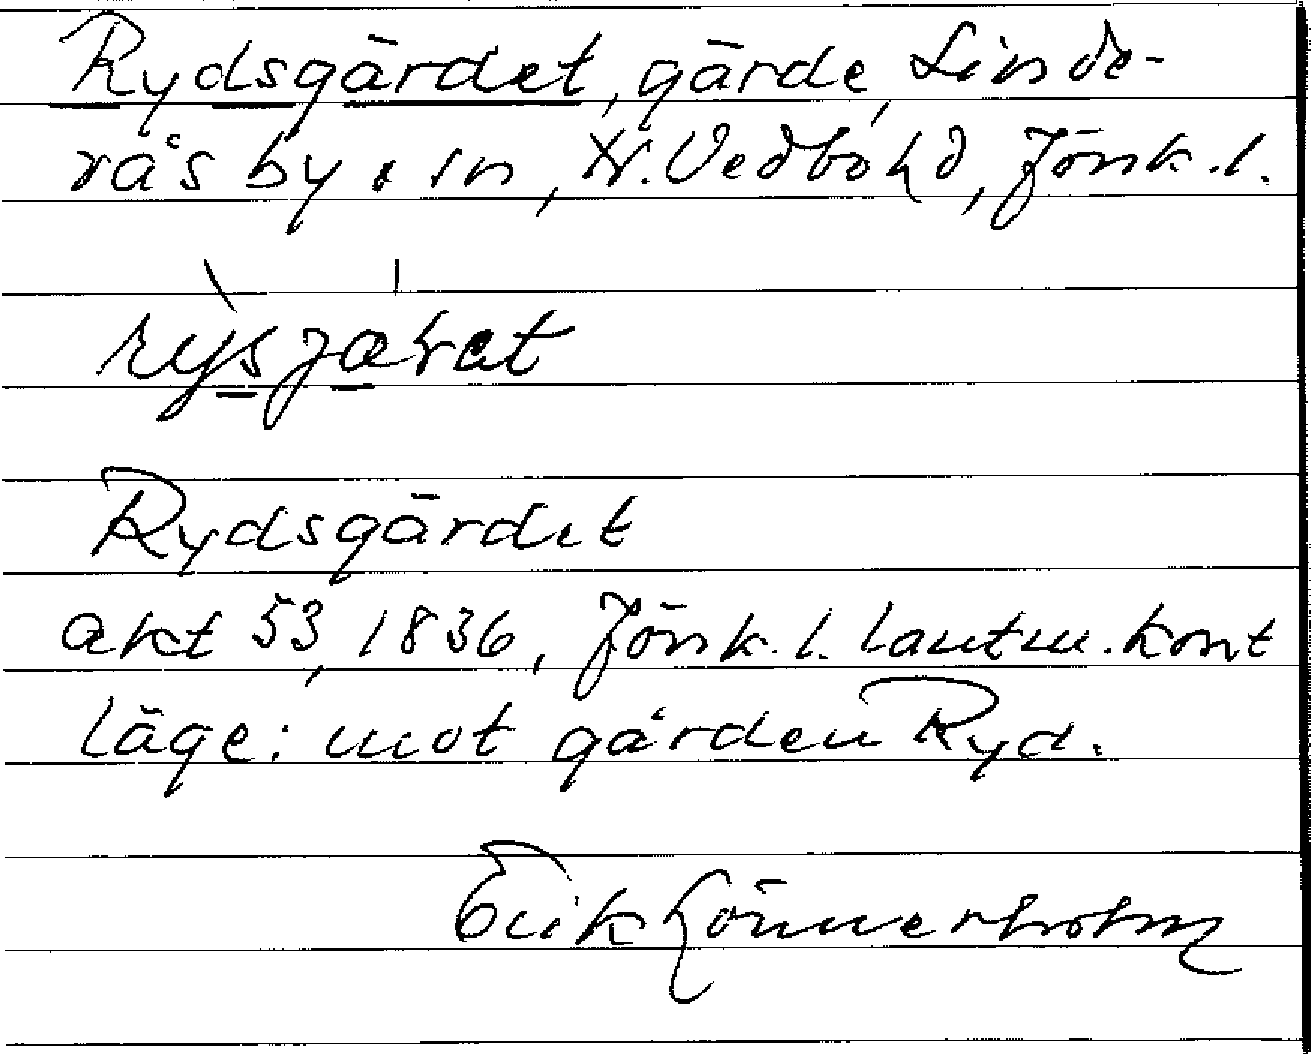 Rydsgärdet, gärde, Linde-
rås by o sn, N. Vedbo hd, Jönk. l.
Rydsgärdet
akt 53, 1836, Jönk. l. lantm. kont
läge: mot gården Ryd.
Erik Lönnerholm